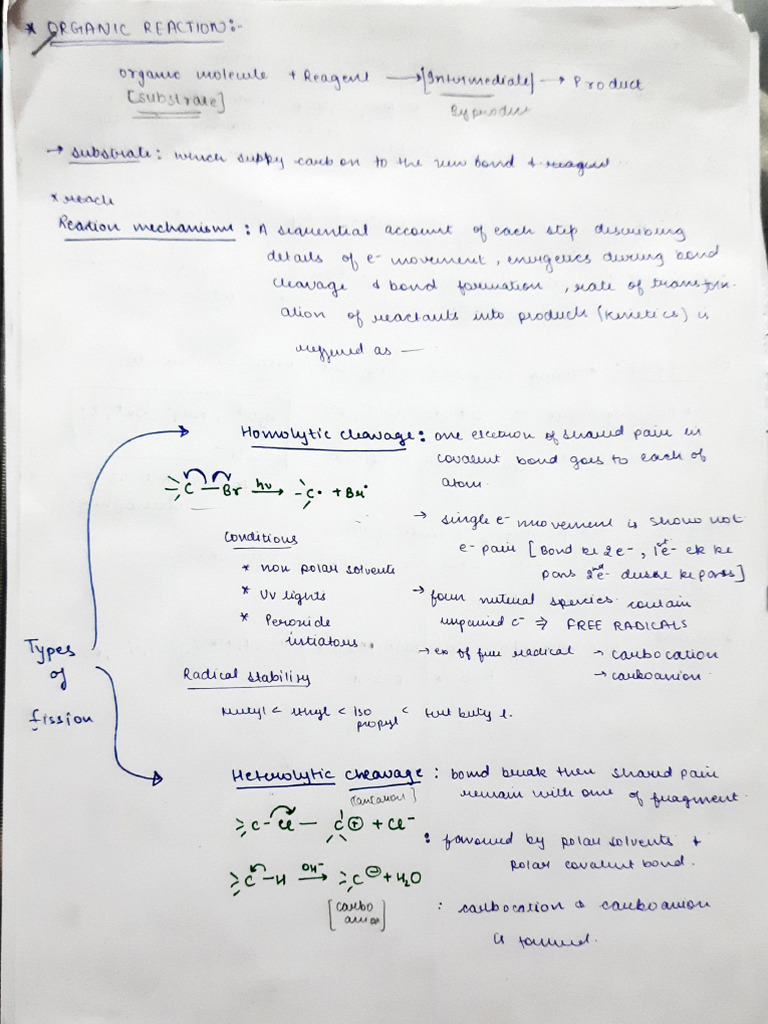 * ORGANIC REACTION:-
organic molecule + Reagent → [Intermediate] → Product
[substrate]
Byproduct
→ substrate: which supply carbon to the new bond & reagent
* reach
Reation mechanism: A sequential account of each step discribing
details of e- movement, energetics during bond
cleavage & bond formation, rate of transform-
ation of reactants into products (kinetics) is
reffered as —
Homolytic cleavage: one electron of shared pair in
covalent bond goes to each of
atom.
C — Br hν → C• + Br•
→ single e- movement is show not
e- pair [Bond ke 2e-, 1st e- ek ke
paas 2nd e- dusre ke paas]
Conditions
* non polar solvents
* UV lights
* Peroxide
intiators
→ form nutural species contain
unpaired e- ⇒ FREE RADICALS
→ ex of free radical → carbocation
→ carboanion
Radical stability
Methyl < ethyl < Iso propyl < tert butyl.
Types
of
fission
Heterolytic cleavage: bond break then shared pair
remain with one of fragment.
C — Cl — C⊕ + Cl-
: favoured by polar solvents &
polar covalent bond.
C — H OH- → C⊖ + H2O
[carbo
anion]
: carbocation & carboanion
is formed.